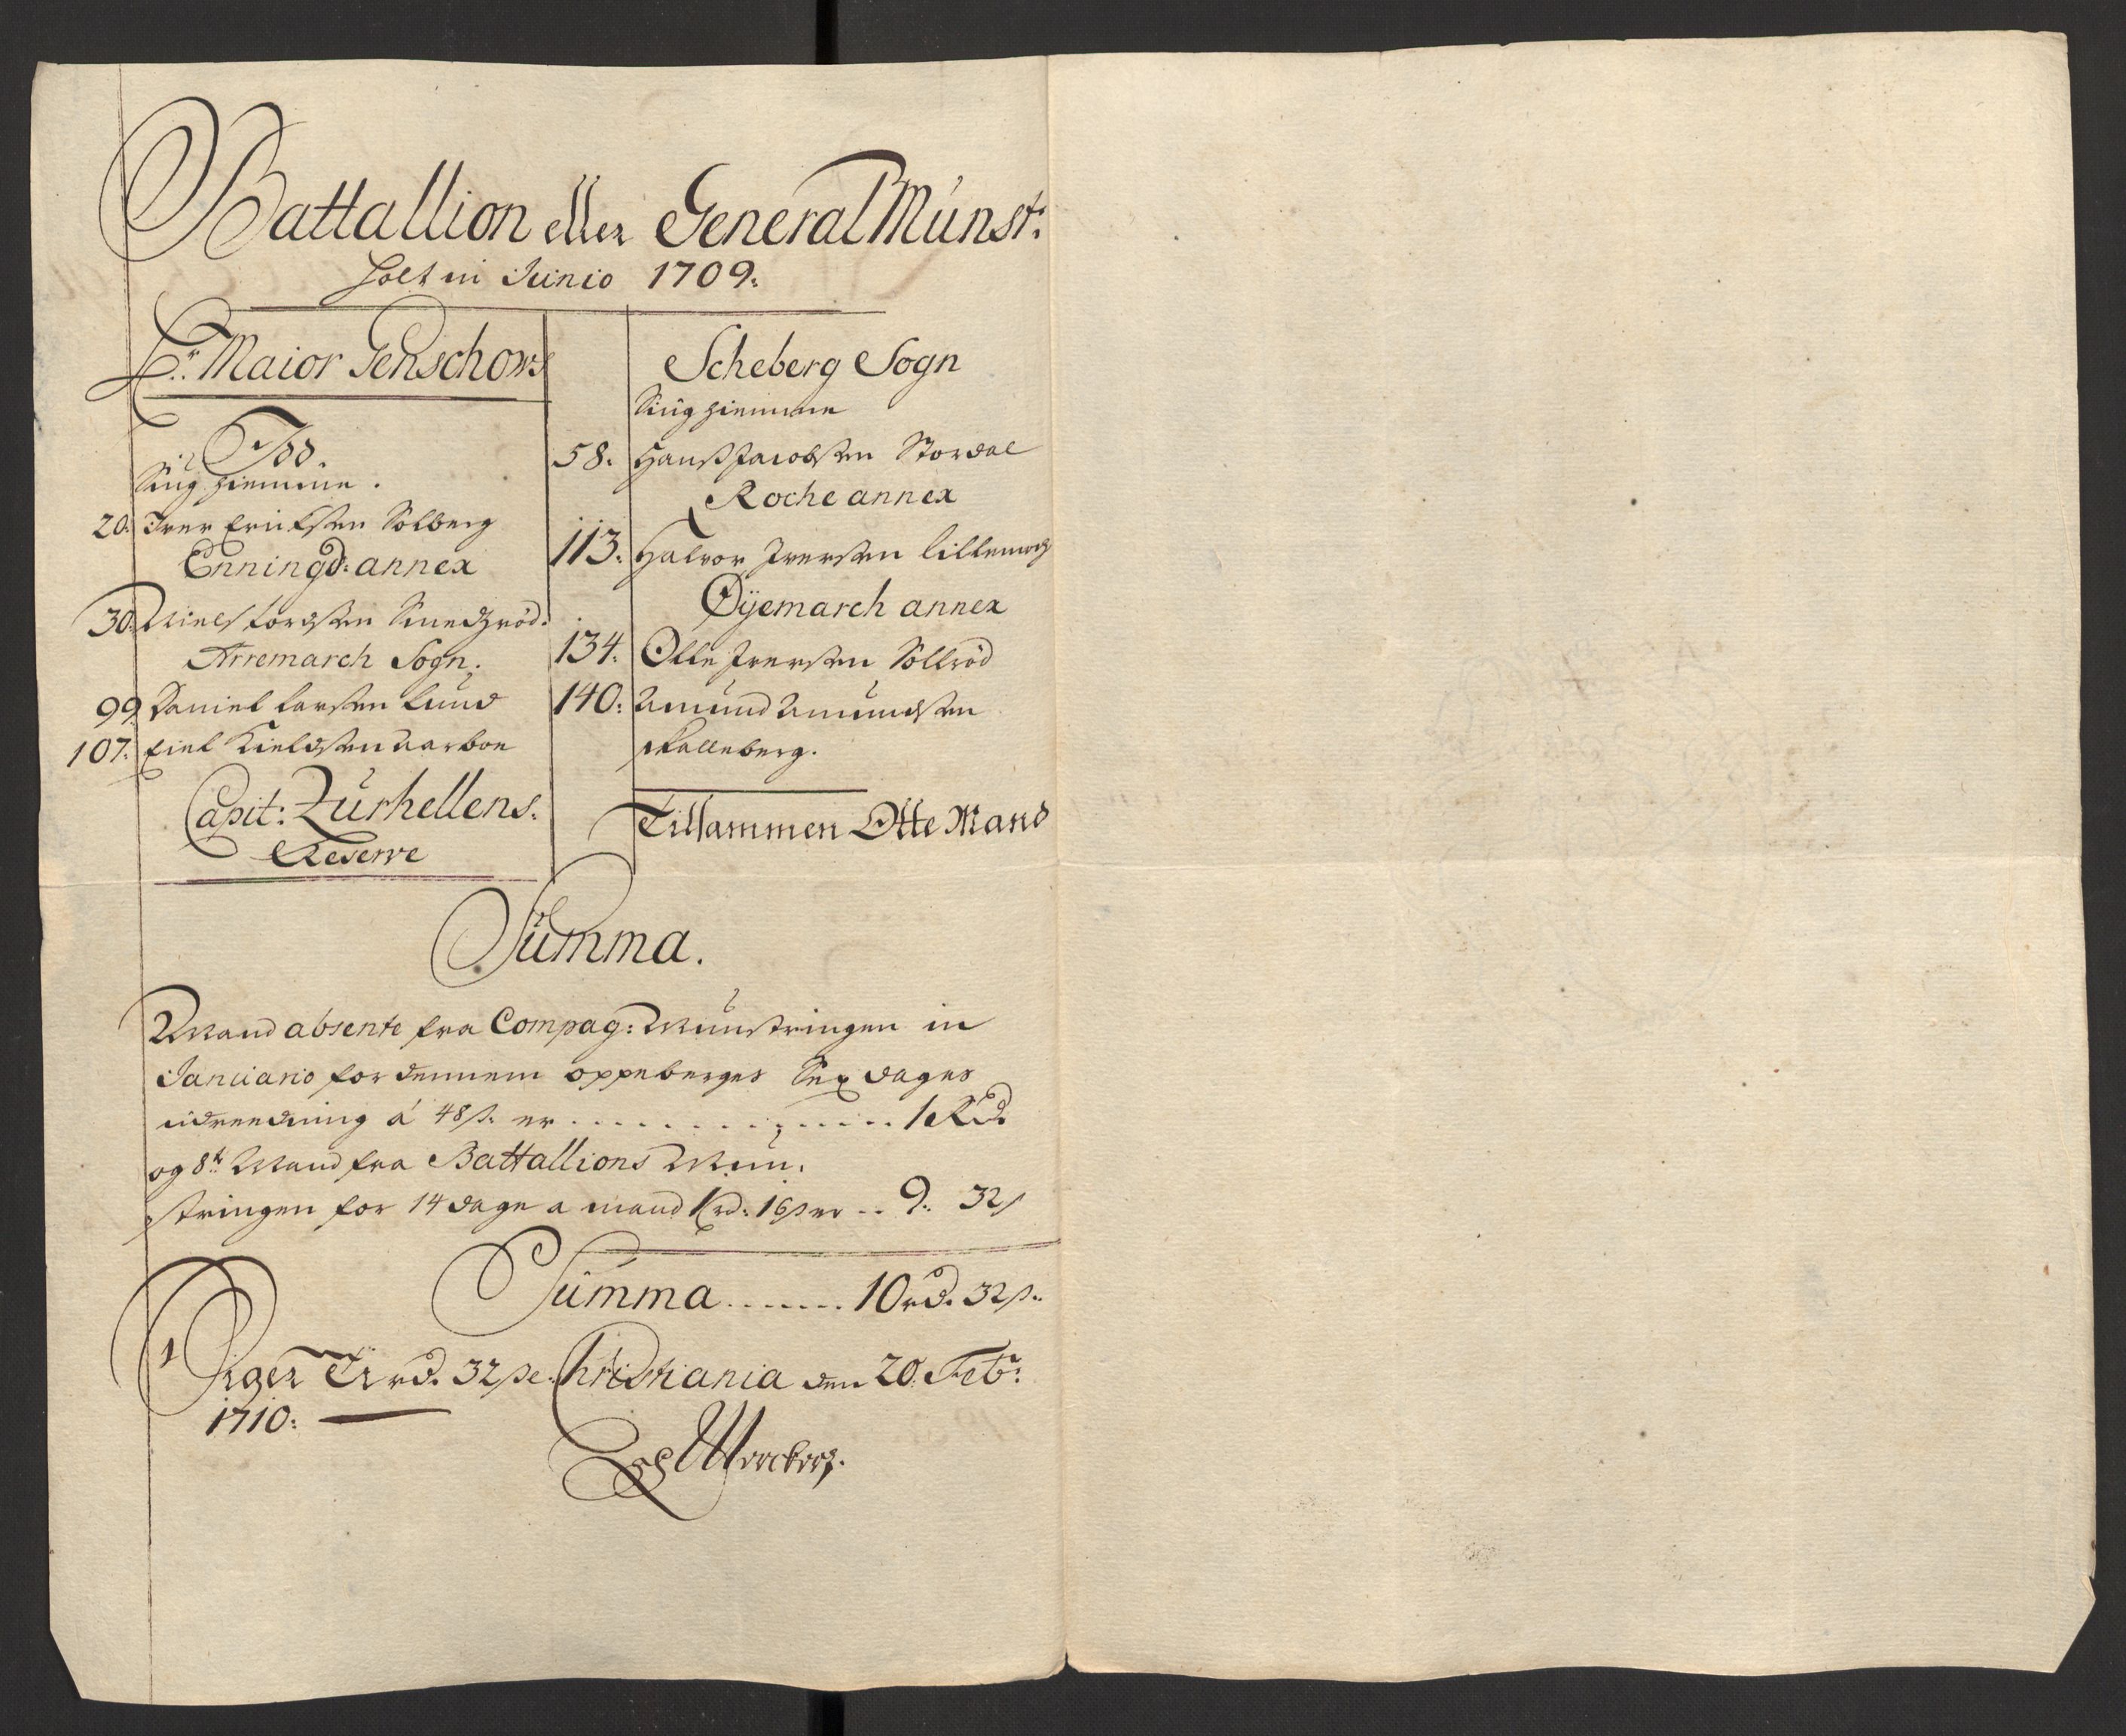 Battallion eller General Münst:
holt in Junio 1709:
Hr: Maior Genschows
Idd.
Siug hiemme.
20: Iver Erichsen Solberg
Enningd: annex
30: Niels Tordsen
Arremarch Sogn.
99 Daniel Larsen Lund
107: Kield Kieldsen Aarboe
Capit: Zürhellens.
Reserve
Scheberg Sogn
Siug hiemme
58. Hanss Jacobsen Stordal
Roche annex
113. Halvor Iversen
Øyemarch annex
134: Olle Iversen Sollröd
140: Amund Amundsen
Kalleberg.
Tillsammen Otte Mand
Summa.
2 Mand absente fra Compag: Münstringen in
Januario for dennem oppeberges Sex dages
udreedning á 48 s. er . . . . . . . . . . . . 1 Rd.
og 8te Mand fra Battallions Mün:
stringen for 14 dage a mand 1 rd: 16 s er . . 9: 32 s
Summa . . . . . . . 10 rd. 32 s.
Siger Ti rd. 32 s. Christiania den 20. Feb:
1710: